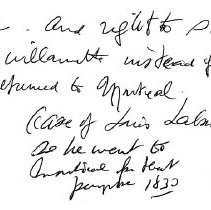 And right to
Willamette instead of
returned to Montreal.
(Case of Louis Labon
as he went to
Montreal for that
purpose 1830